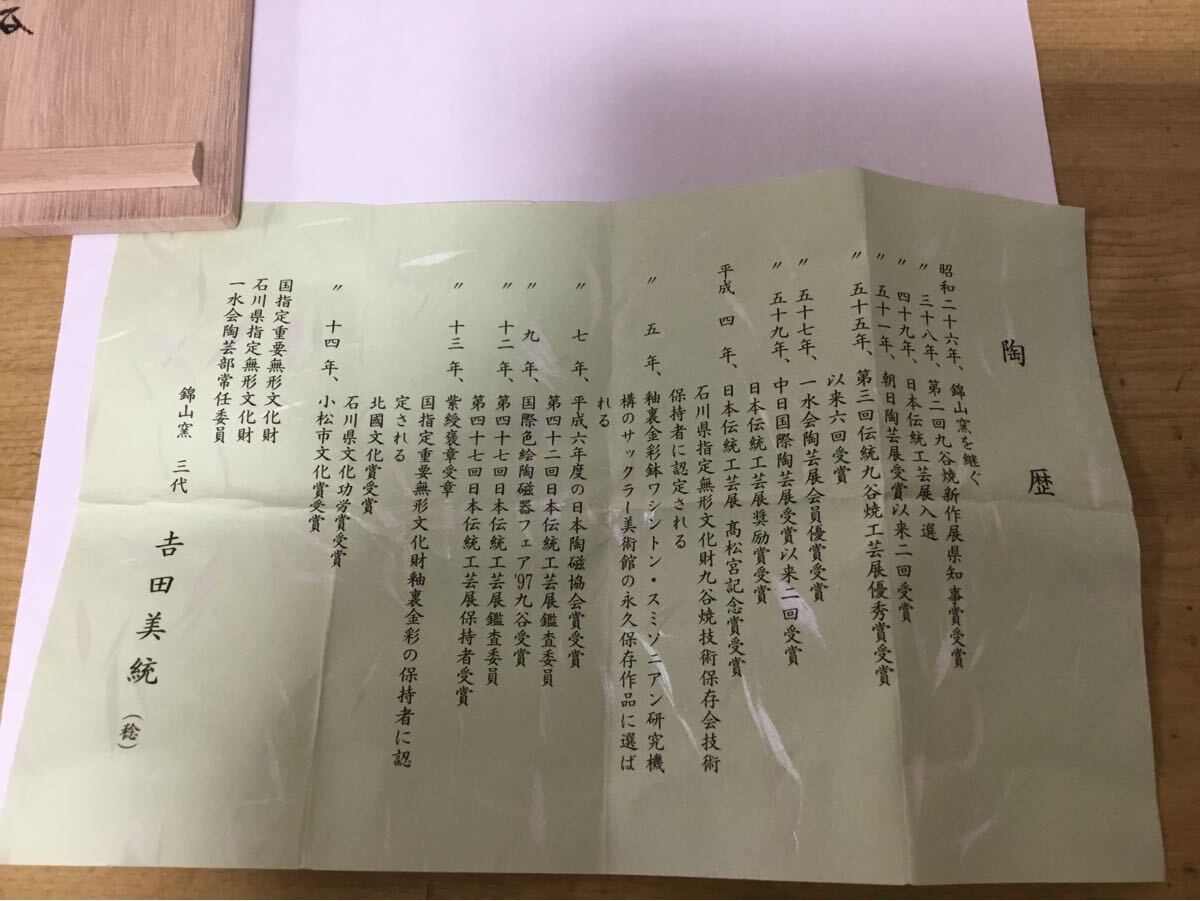 陶歴
昭和二十六年、錦山窯を継ぐ
〃 三十八年、第二回九谷焼新作展県知事賞受賞
〃 四十九年、日本伝統工芸展入選
〃 五十一年、朝日陶芸展受賞以来二回受賞
〃 五十五年、第三回伝統九谷焼工芸展優秀賞受賞
以来六回受賞
〃 五十七年、一水会陶芸展会員優賞受賞
〃 五十九年、中日国際陶芸展受賞以来二回受賞
日本伝統工芸展奨励賞受賞
平成 四 年、日本伝統工芸展 髙松宮記念賞受賞
石川県指定無形文化財九谷焼技術保存会技術
保持者に認定される
〃 五 年、釉裏金彩鉢ワシントン・スミソニアン研究機
構のサックラー美術館の永久保存作品に選ば
れる
〃 七 年、平成六年度の日本陶磁協会賞受賞
第四十二回日本伝統工芸展鑑査委員
〃 九 年、国際色絵陶磁器フェア'97九谷受賞
〃 十二 年、第四十七回日本伝統工芸展鑑査委員
第四十七回日本伝統工芸展保持者受賞
〃 十三 年、紫綬褒章受章
国指定重要無形文化財釉裏金彩の保持者に認
定される
北國文化賞受賞
石川県文化功労賞受賞
〃 十四 年、小松市文化賞受賞
国指定重要無形文化財
石川県指定無形文化財
一水会陶芸部常任委員
錦山窯 三代 吉田美統 (稔)